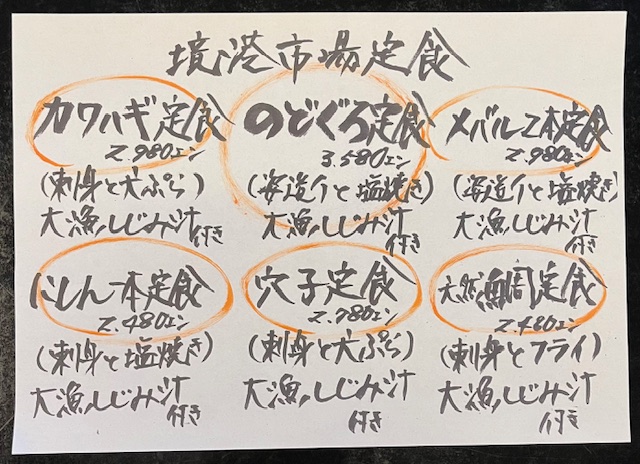 境港市場定食
カワハギ定食
2.980ェン
(刺身と天ぷら)
大漁しじみ汁
付き
のどぐろ定食
3.580ェン
(姿造りと塩焼き)
大漁しじみ汁
付き
メバル2本定食
2.980ェン
(姿造りと塩焼き)
大漁しじみ汁
付き
にしん一本定食
2.480ェン
(刺身と塩焼き)
大漁しじみ汁
付き
穴子定食
2.780ェン
(刺身と天ぷら)
大漁しじみ汁
付き
天然鯛定食
2.480ェン
(刺身とフライ)
大漁しじみ汁
付き